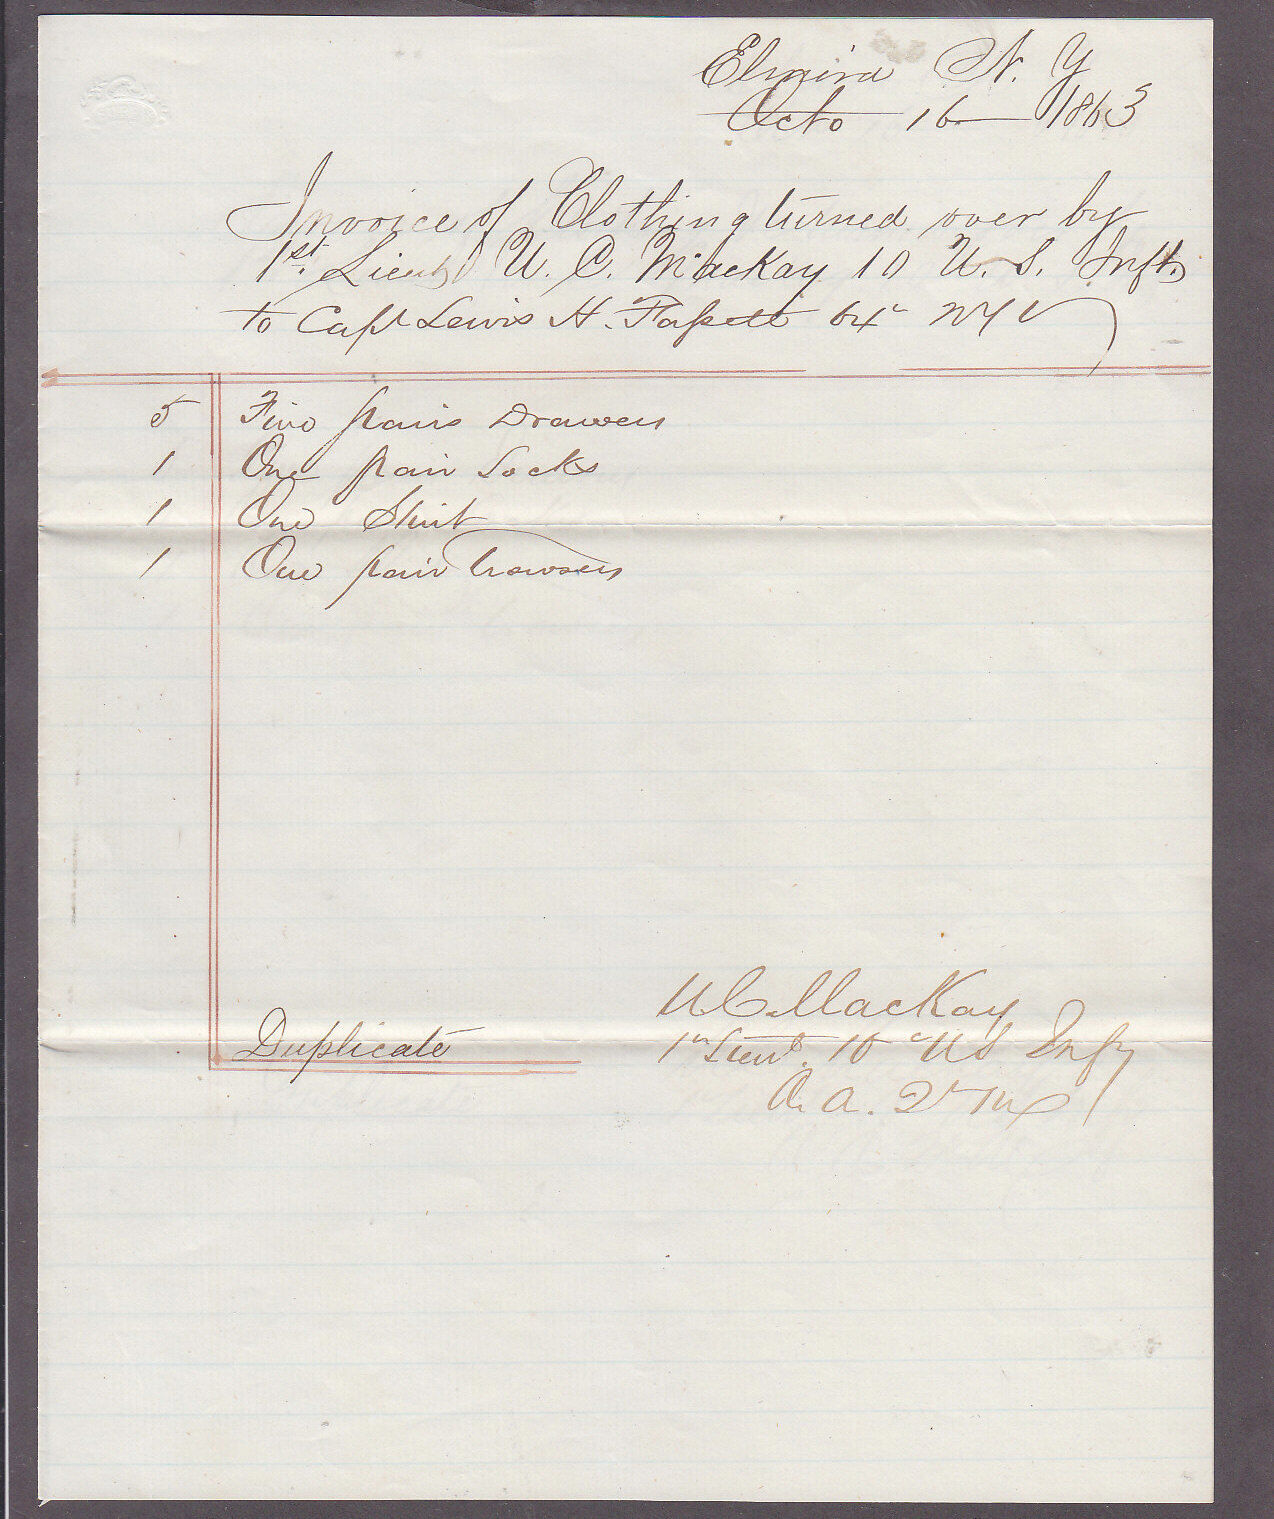 Elmira N. Y
Octo 16 1863
Invoice of Clothing turned over by
1st. Lieut U. C. MacKay 10 U. S. Inft.
to Capt Lewis H. Fassett 64" NYV
5 Five pairs Drawers
1 One pair Socks
1 One Shirt
1 One pair Trowsers
U C. MacKay
Duplicate 1" Lieut. 10" US Infy
A. A. Q" M